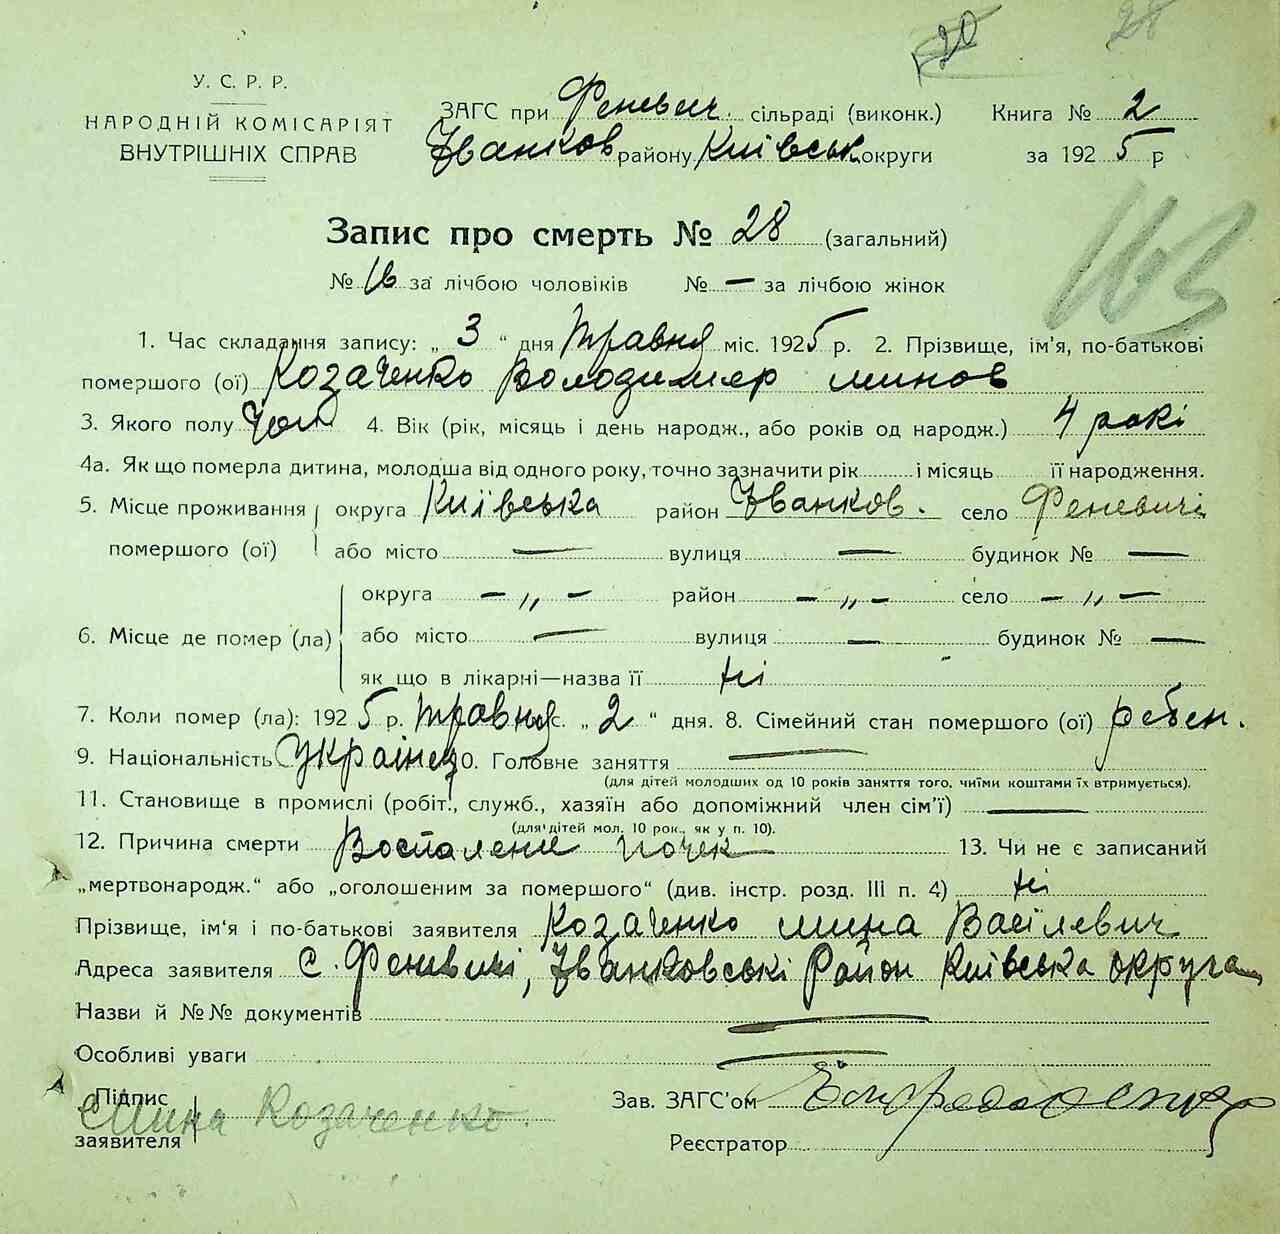 20 28
У. С. Р. Р.
НАРОДНІЙ КОМІСАРІЯТ
ВНУТРІШНІХ СПРАВ
ЗАГС при Феневич. сільраді (виконк.) Книга № 2
Іванков району Київськ округи за 1925 р
Запис про смерть № 28 (загальний)
№ 16 за лічбою чоловіків № — за лічбою жінок
163
1. Час складання запису: „ 3 “ дня травня міс. 1925 р. 2. Прізвище, ім'я, по-батькові
помершого (ої) Козаченко Володимер Минов
3. Якого полу Чол 4. Вік (рік, місяць і день народж., або років од народж.) 4 рокі
4а. Як що померла дитина, молодша від одного року, точно зазначити рік і місяць її народження.
5. Місце проживання округа Київська район Іванков. село Феневичі
помершого (ої) або місто — вулиця — будинок № —
округа — „ — район — „ — село — „ —
6. Місце де помер (ла) або місто — вулиця — будинок № —
як що в лікарні—назва її ні
7. Коли помер (ла): 1925 р. травня с. „ 2 “ дня. 8. Сімейний стан помершого (ої) ребен.
9. Національність Українец 10. Головне заняття —
(для дітей молодших од 10 років заняття того, чиїми коштами їх втримується).
11. Становище в промислі (робіт., служб., хазяїн або допоміжний член сім'ї) —
(для дітей мол. 10 рок., як у п. 10).
12. Причина смерти Воспалене почек 13. Чи не є записаний
„мертвонародж.“ або „оголошеним за помершого“ (див. інстр. розд. III п. 4) ні
Прізвище, ім'я і по-батькові заявителя Козаченко Мина Васілевич
Адреса заявителя с. Феневичі, Іванковські Район Київська округа
Назви й №№ документів —
Особливі уваги —
Підпис Мина Козаченко. Зав. ЗАГС'ом
заявителя Реєстратор